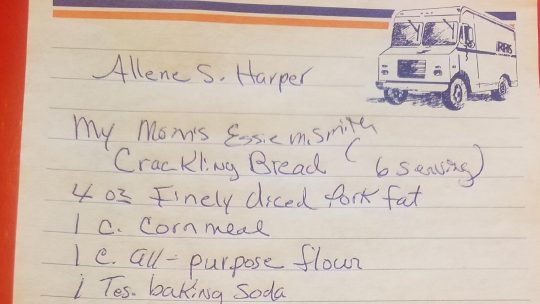 RPS
Allene S. Harper
My Mom's Essie M. Smith
Crackling Bread (6 serving)
4 oz Finely diced Pork fat
1 c. Corn meal
1 c. all-purpose flour
1 Tes. baking Soda